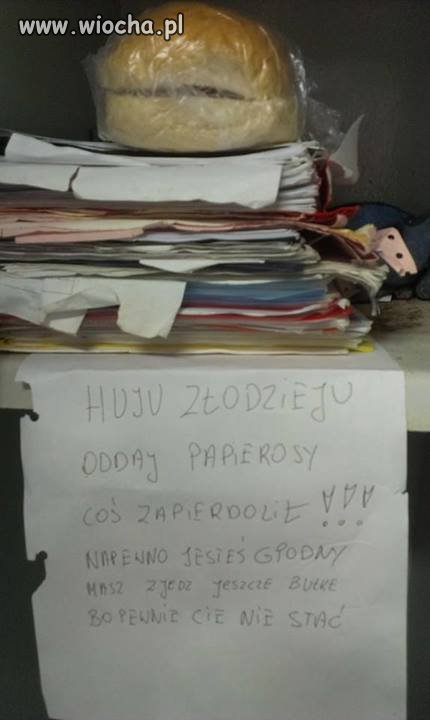 www.wiocha.pl
HUJU ZŁODZIEJU
ODDAJ PAPIEROSY
COŚ ZAPIERDOLIŁ !!!
NAPEWNO JESTEŚ GŁODNY
MASZ ZJEDZ JESZCZE BUŁKE
BO PEWNIE CIE NIE STAĆ